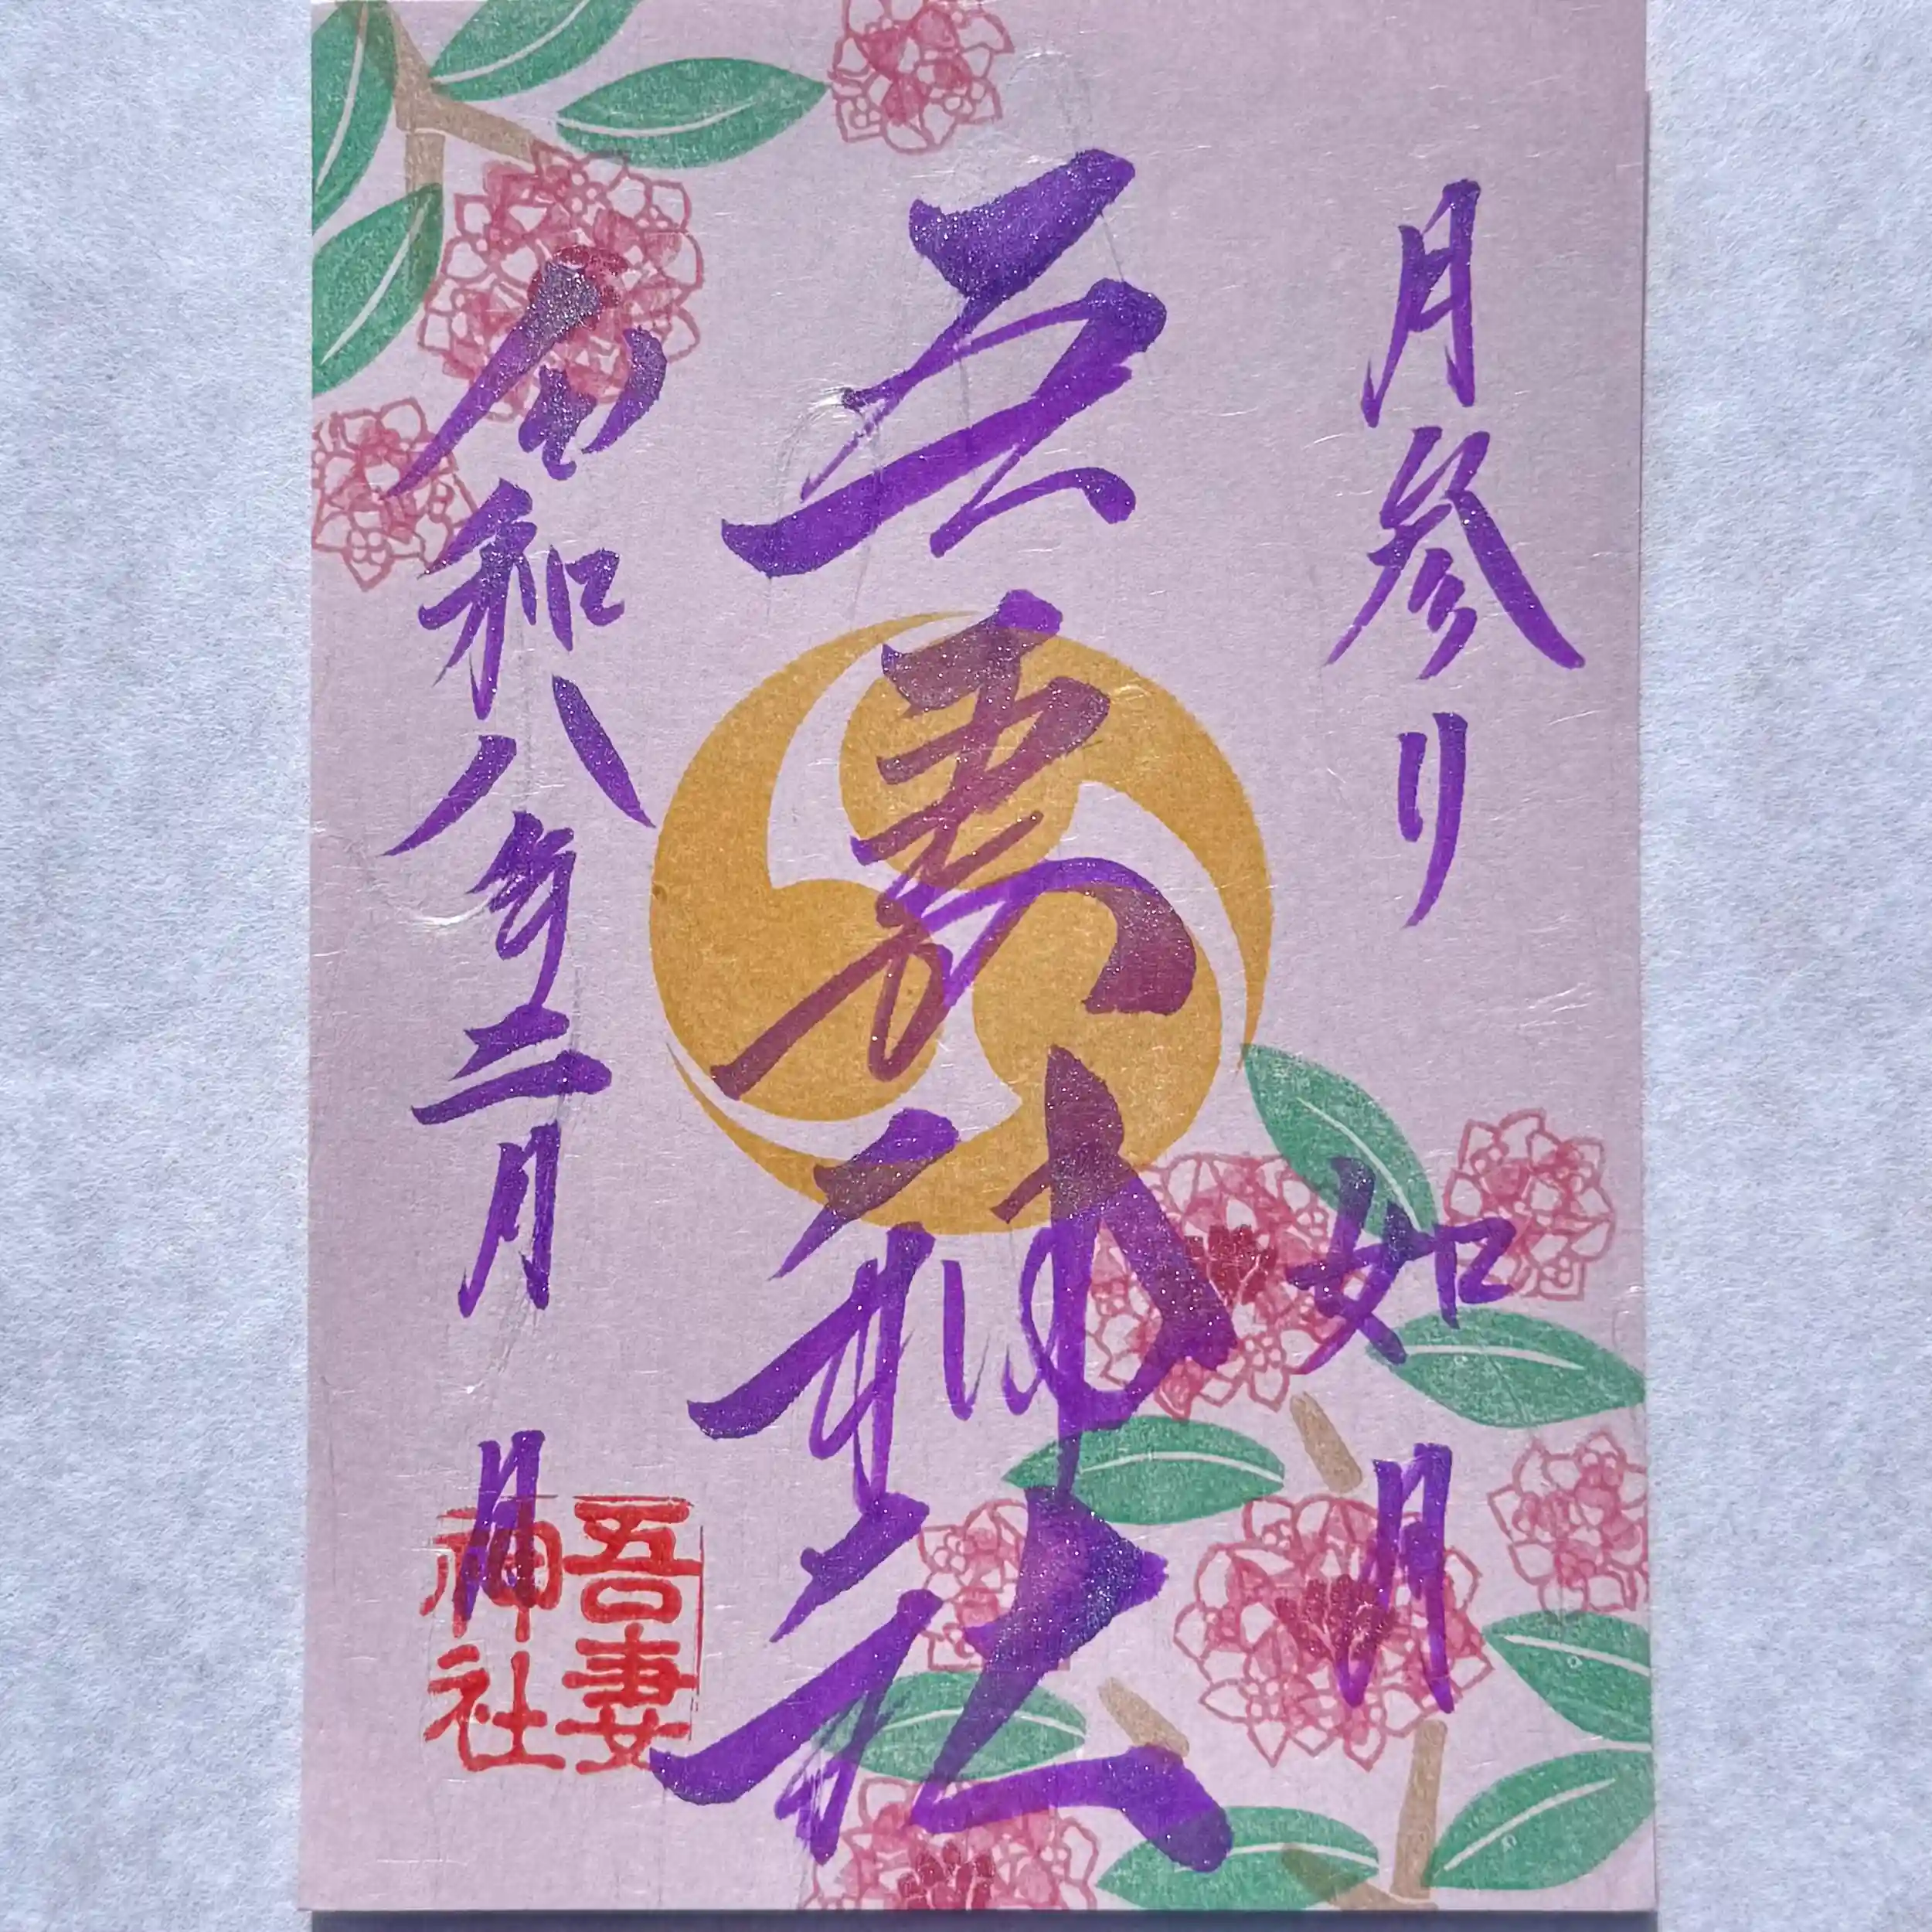 月参り
如月
吾妻神社
令和八年二月
月
吾妻
神社